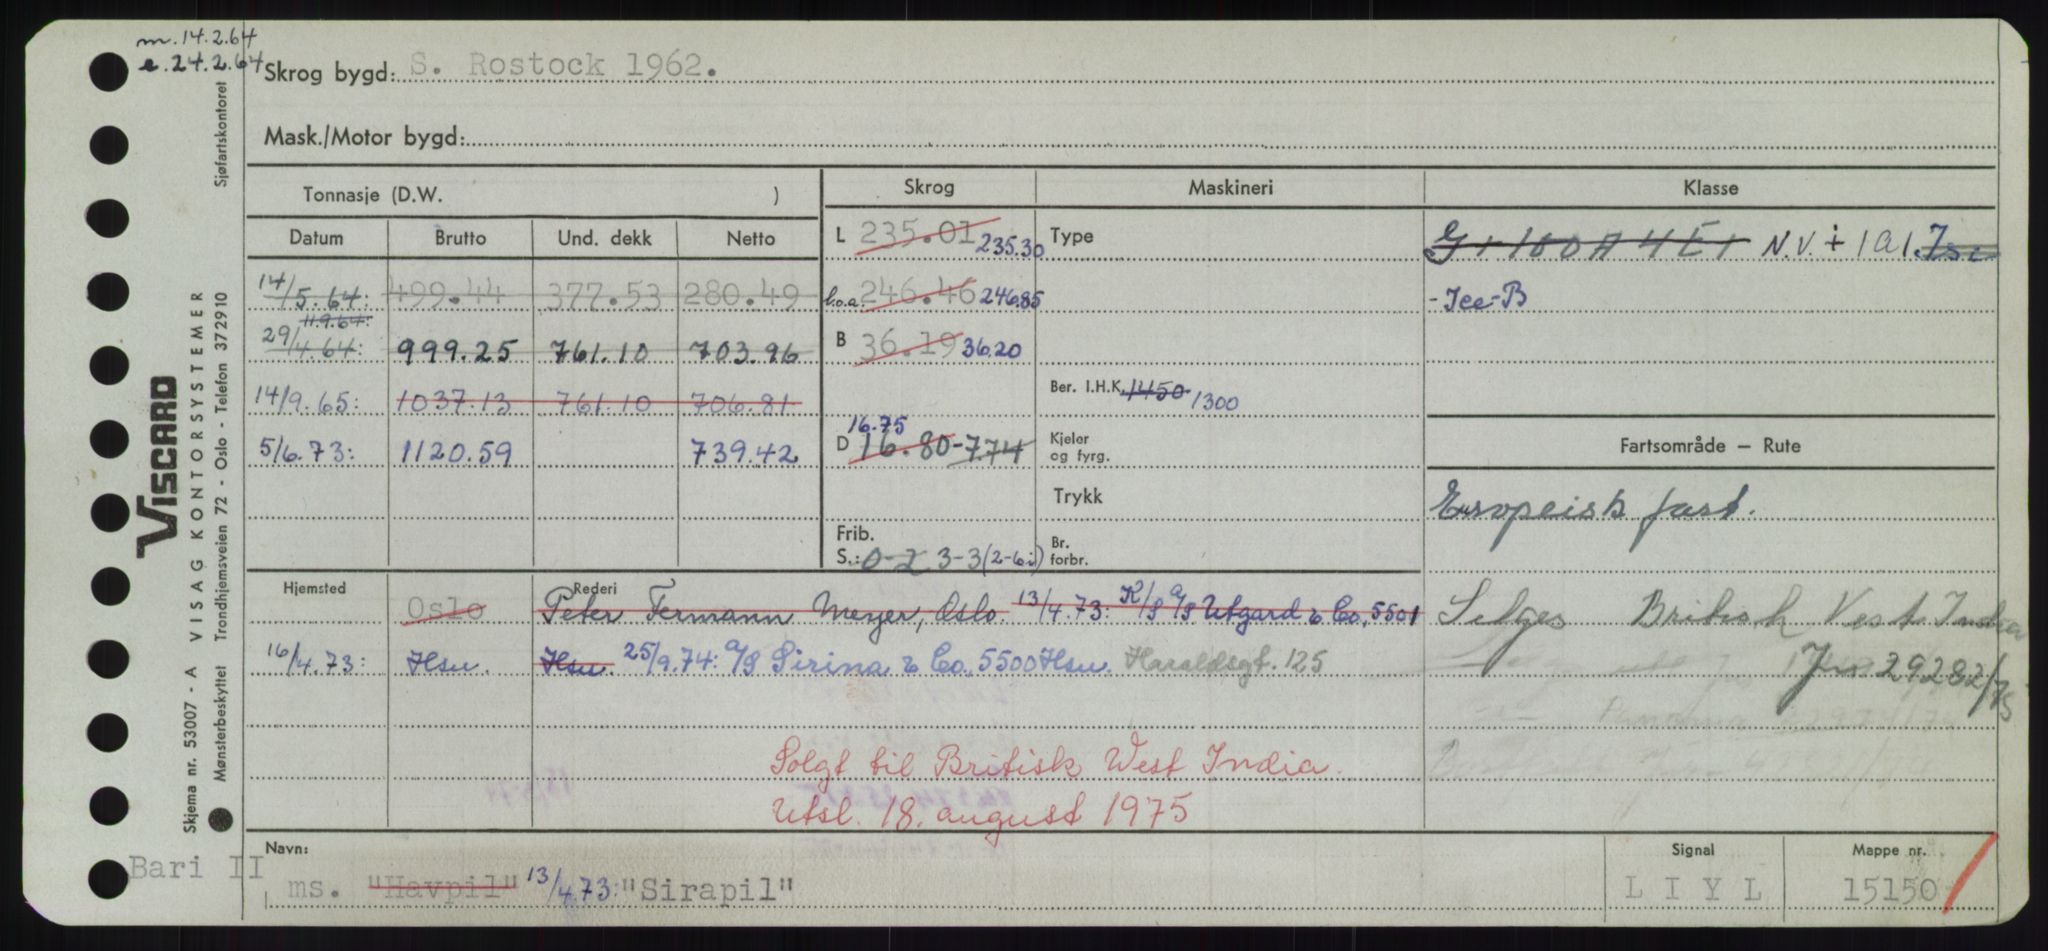 m. 14.2.64
e. 24.2.64
Skrog bygd: S. Rostock 1962.
Mask./Motor bygd:
Tonnasje (D.W. )
Skrog
Maskineri
Klasse
Datum Brutto Und. dekk Netto
L 235.01 235.30
Type
N.V. + 1A1. Isc
14/5.64: 499.44 377.53 280.49
l.o.a. 246.46 246.85
-Ice-B
11.9.64:
29/4.64: 999.25 761.10 703.96
B 36.19 36.20
14/9.65: 1037.13 761.10 706.81
Ber. I.H.K. 1450 1300
16.75
5/6.73: 1120.59 739.42
D 16.80-7.74
Kjeler
og fyrg.
Fartsområde — Rute
Trykk
Europeisk fart.
Frib.
S.: 0-2 3-3 (2-6i)
Br.
forbr.
Hjemsted
Rederi
Oslo Peter Fermann Meyer, Oslo. 13/4.73: K/S A/S Utgard & Co, 5501
Selges British Vest India
16/4.73: Hsu. Hsu. 25/9.74: A/S Sirina & Co., 5500 Hsu. Haraldsgt. 125
Jnr 29282/75
Solgt til Britisk West India.
Utsl. 18. august 1975
Navn:
Signal
Mappe nr.
Bari II
ms. "Havpil" 13/4.73: "Sirapil"
LIYL
15150
Viscard
VISAG KONTORSYSTEMER
Skjema nr. 53007 - A
Sjøfartskontoret
Mønsterbeskyttet Trondhjemsveien 72 - Oslo - Telefon 372910